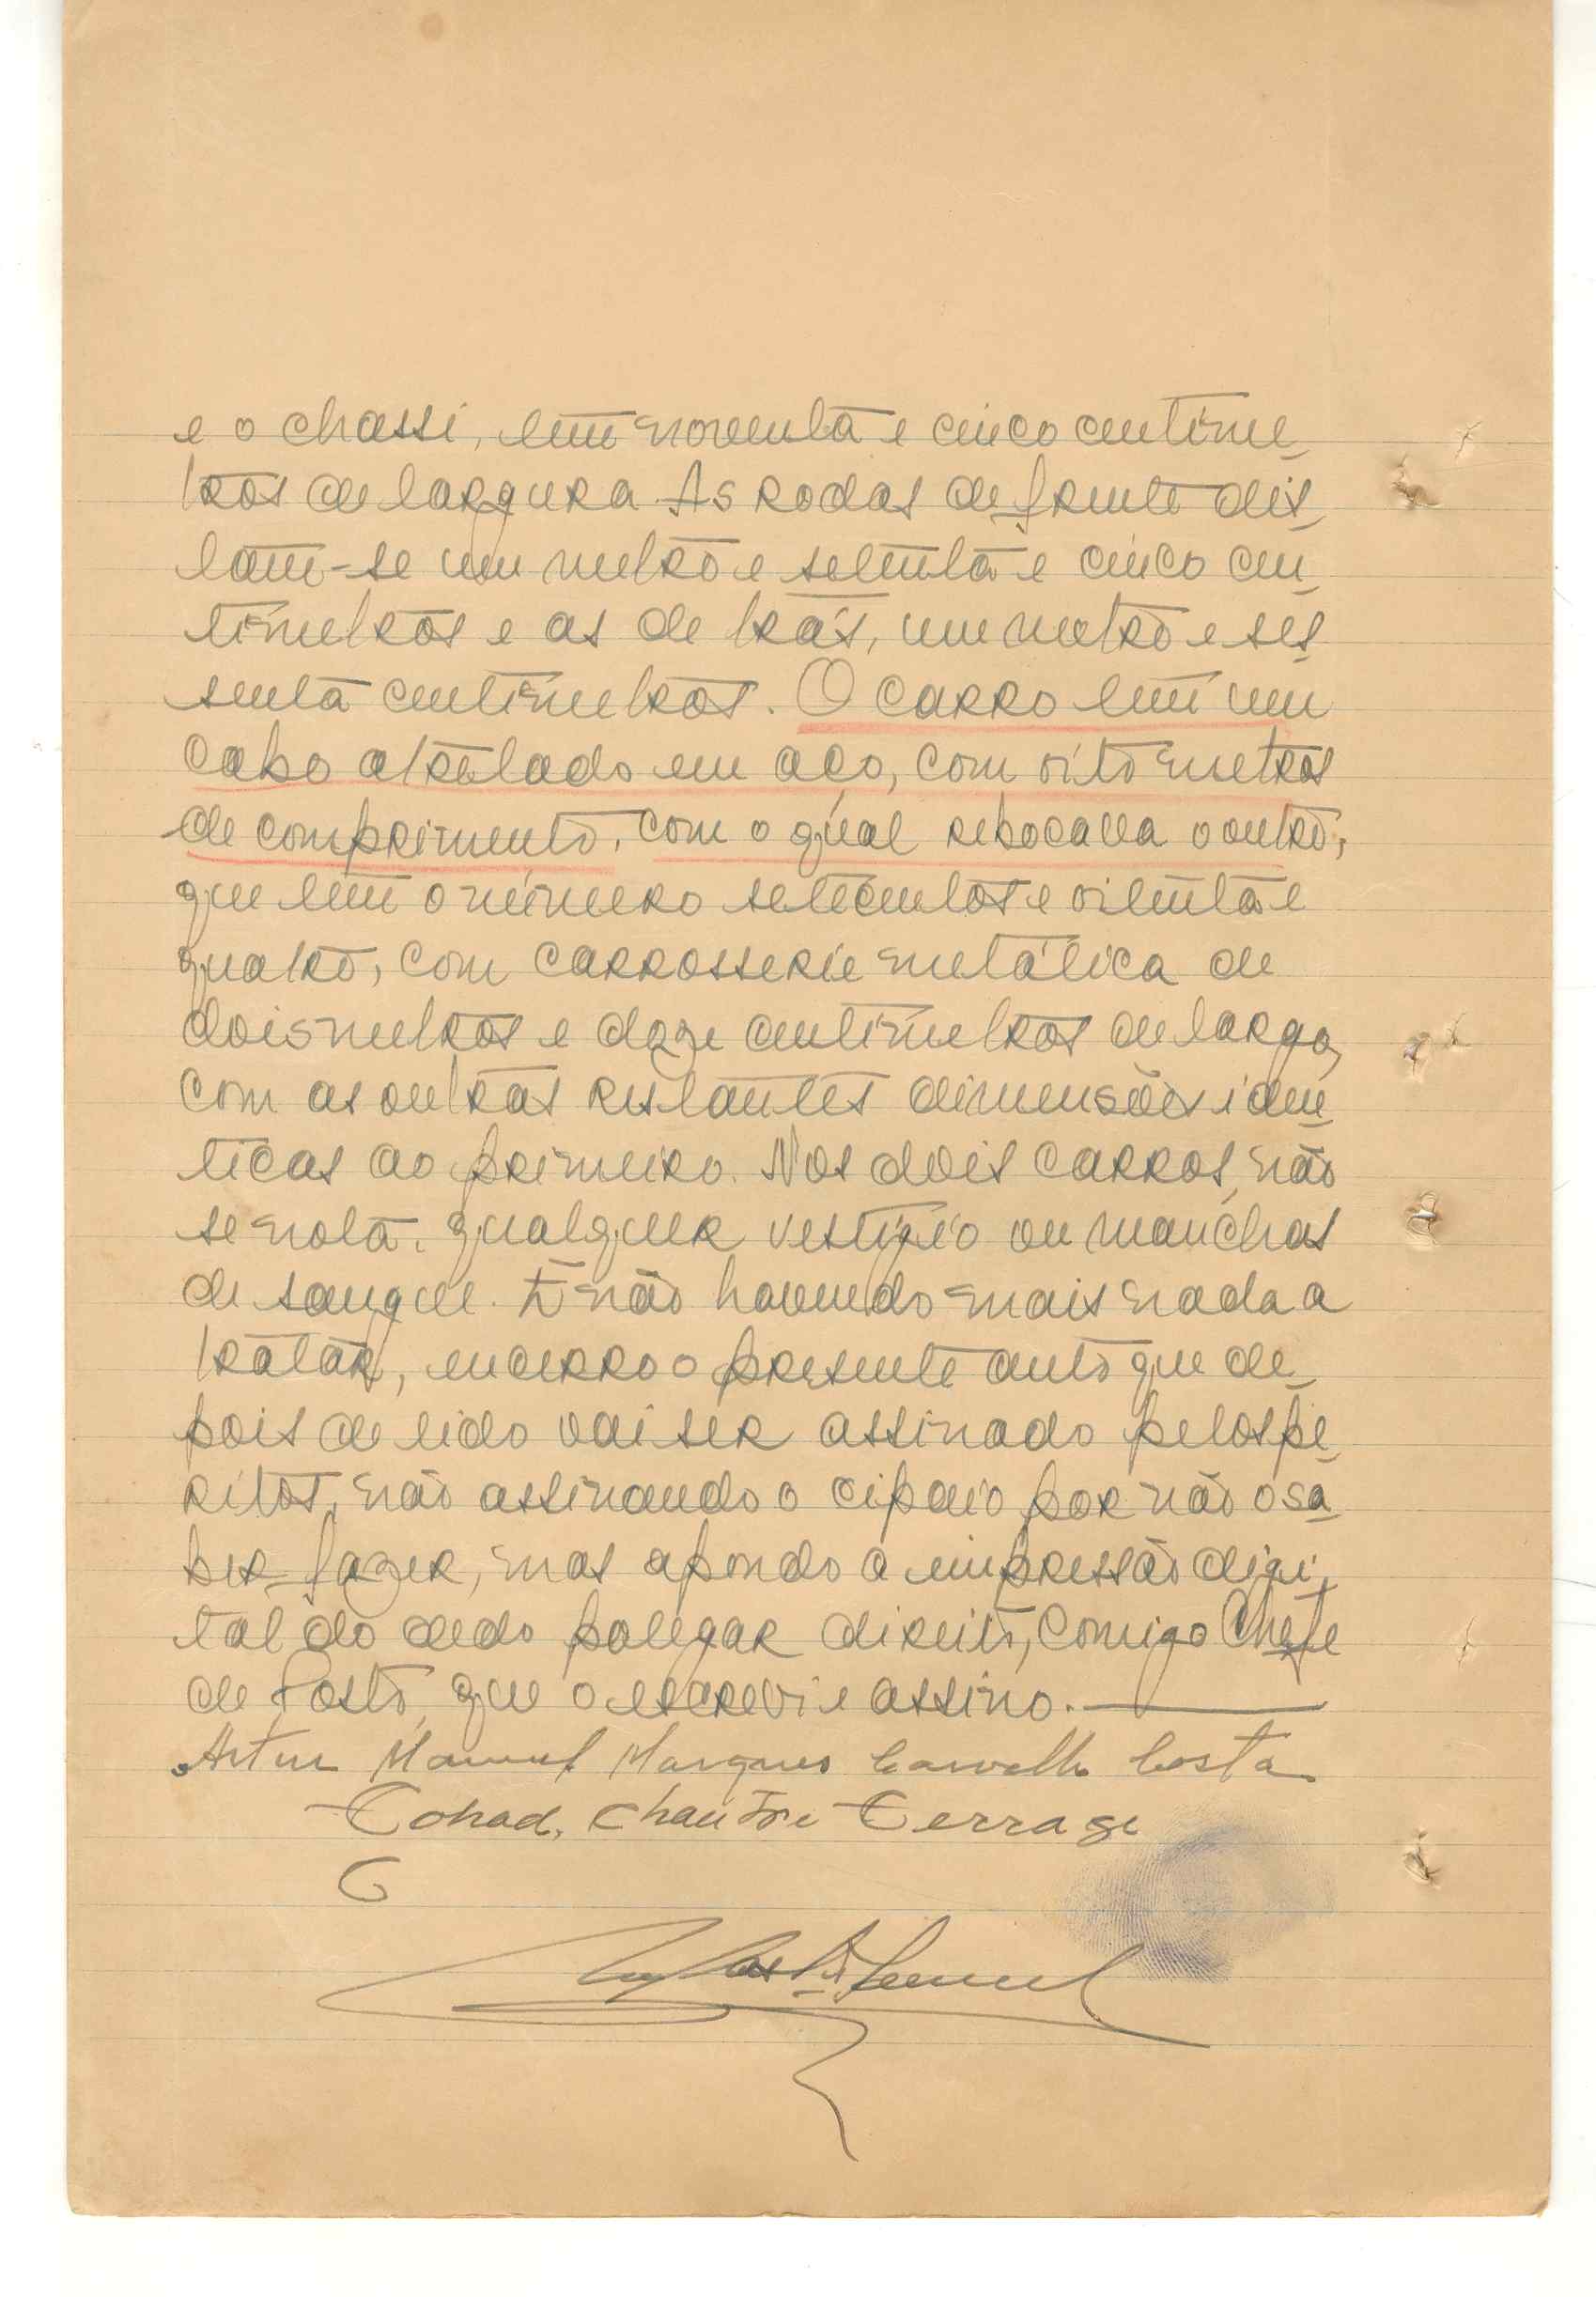 e o chassi, tem noventa e cinco centime-
tros de largura. As rodas de frente dis-
tam-se um metro e setenta e cinco cen-
timetros e as de trás, um metro e ses-
senta centimetros. O carro tem um
cabo atrelado em aço, com oito metros
de comprimento, com o qual rebocava o outro,
que tem o número setecentos e oitenta e
quatro, com carrosserie metálica de
dois metros e doze centimetros de largo,
com as outras restantes dimensões iden-
ticas ao primeiro. Nos dois carros, não
se nota, qualquer vestigio ou manchas
de sangue. E não havendo mais nada a
tratar, encerro o presente auto que de-
pois de lido vai ser assinado pelos pe-
ritos, não assinando o cipaio por não o sa-
ber fazer, mas apondo a impressão digi-
tal do dedo polegar direito, comigo Chefe
de Posto, que o escrevi e assino.
Artur Manuel Marques Carvalho Costa